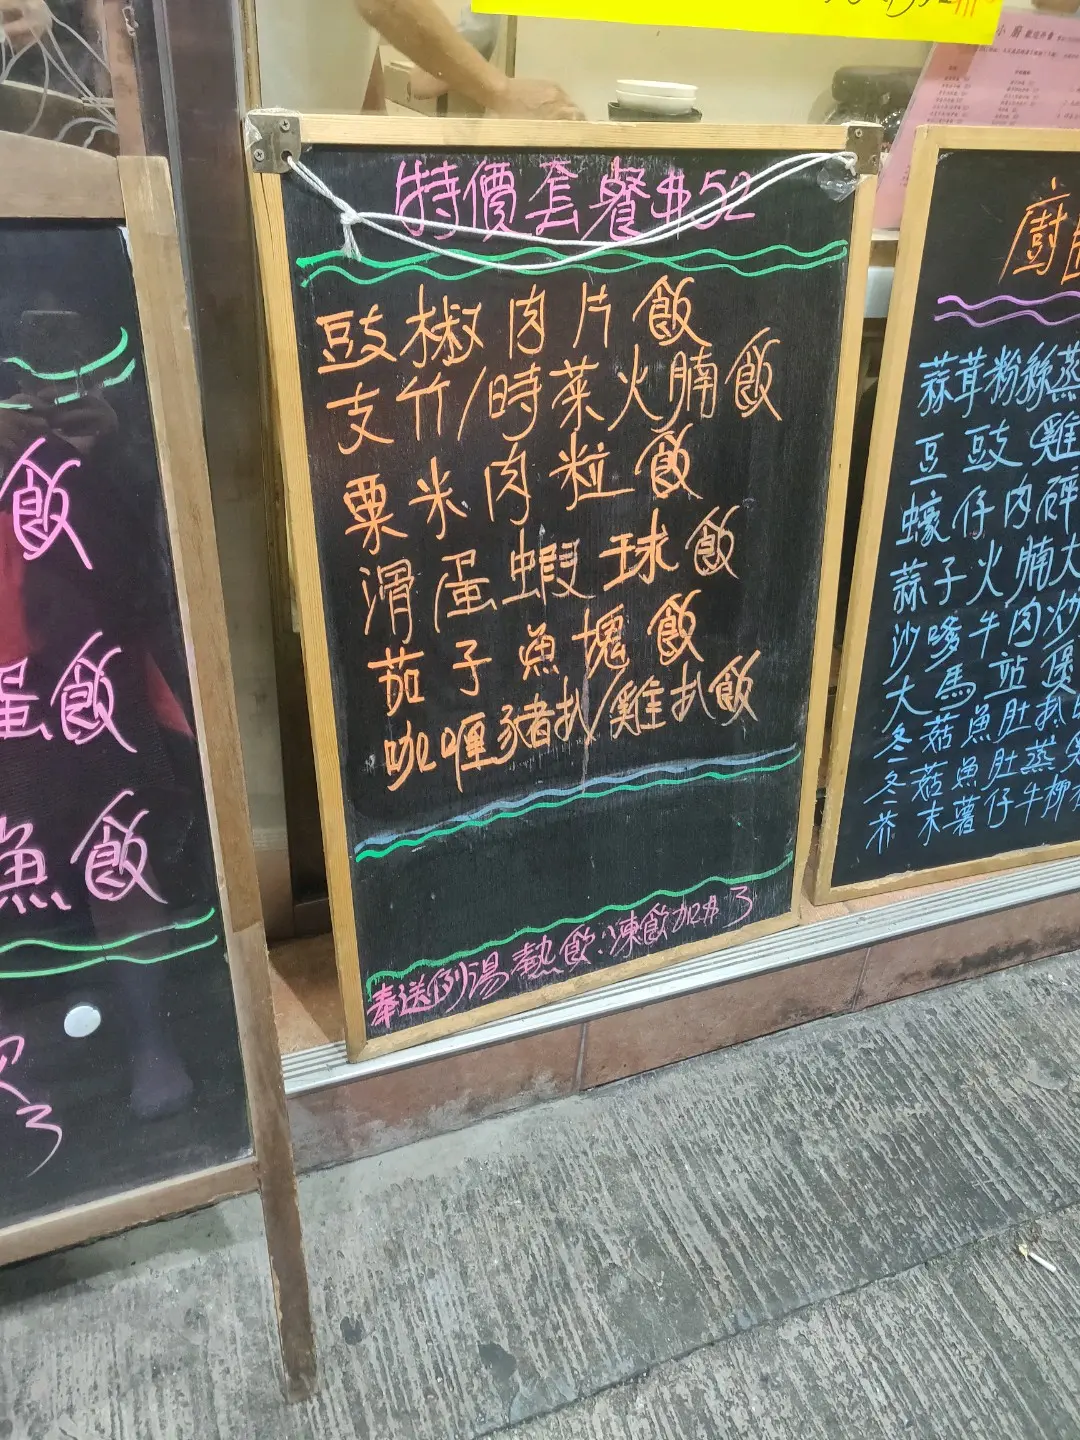 飯
蛋飯
魚飯
3
特價套餐$52
豉椒肉片飯
支竹/時菜火腩飯
粟米肉粒飯
滑蛋蝦球飯
茄子魚塊飯
咖喱豬扒/雞扒飯
奉送例湯 熱飲:凍飲加$3
廚
蒜茸粉絲蒸
豆豉雞
蠔仔肉碎
蒜子火腩大
沙嗲牛肉炒
大馬站煲
冬菇魚肚扒
冬菇魚肚蒸
芥末薯仔牛柳